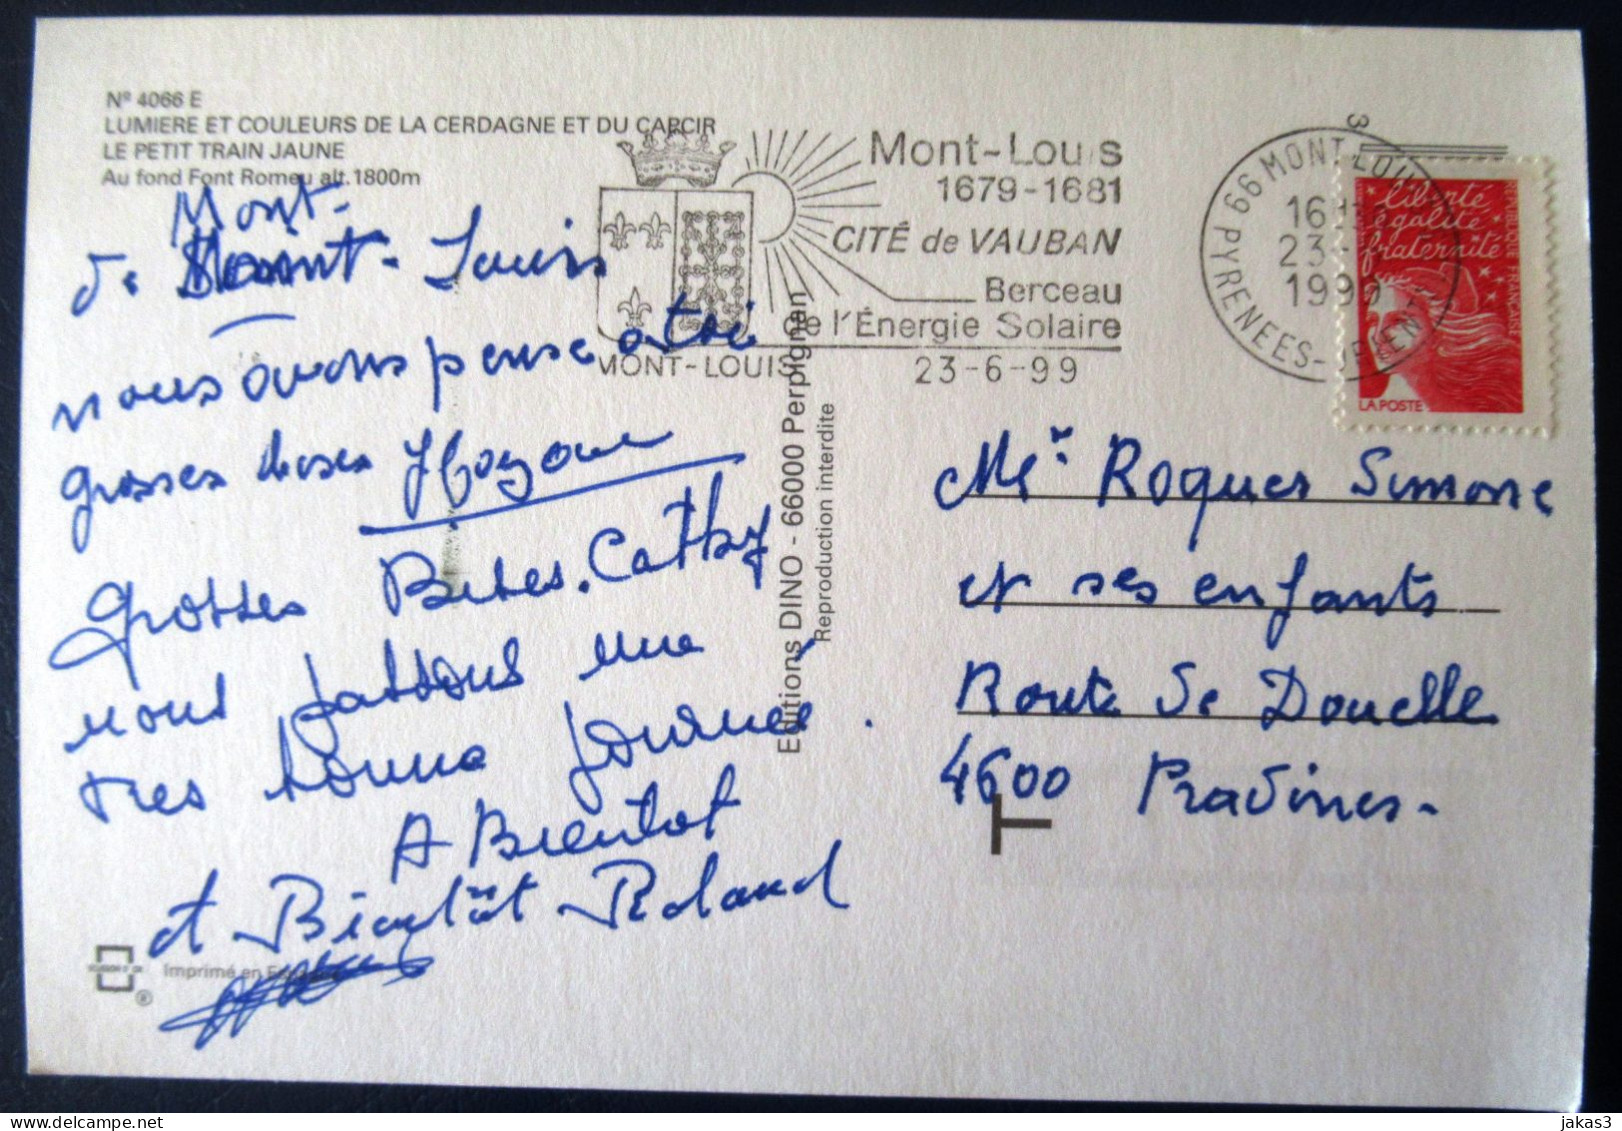 Nº 4066 E
LUMIERE ET COULEURS DE LA CERDAGNE ET DU CAPCIR
LE PETIT TRAIN JAUNE
Au fond Font Romeu alt. 1800m
Mont-
de Mont-Louis
nous avons pense a toi
grosses bises
Grosses Bises. Cathy
nous passons une
tres bonne journée.
A Bientot
et Bientôt Roland
Imprimé en
Editions DINO - 66000 Perpignan
Reproduction interdite
MONT-LOUIS
Mont-Louis
1679-1681
CITÉ de VAUBAN
Berceau
de l'Énergie Solaire
23-6-99
66 MONT LOUIS
PYRENEES-ORIENTALES
16H
23-
1999
3
liberté
égalité
fraternité
REPUBLIQUE FRANÇAISE
LA POSTE
Me Roques Simone
et ses enfants
Route de Douelle
4600 Pradines-
T
jakas3